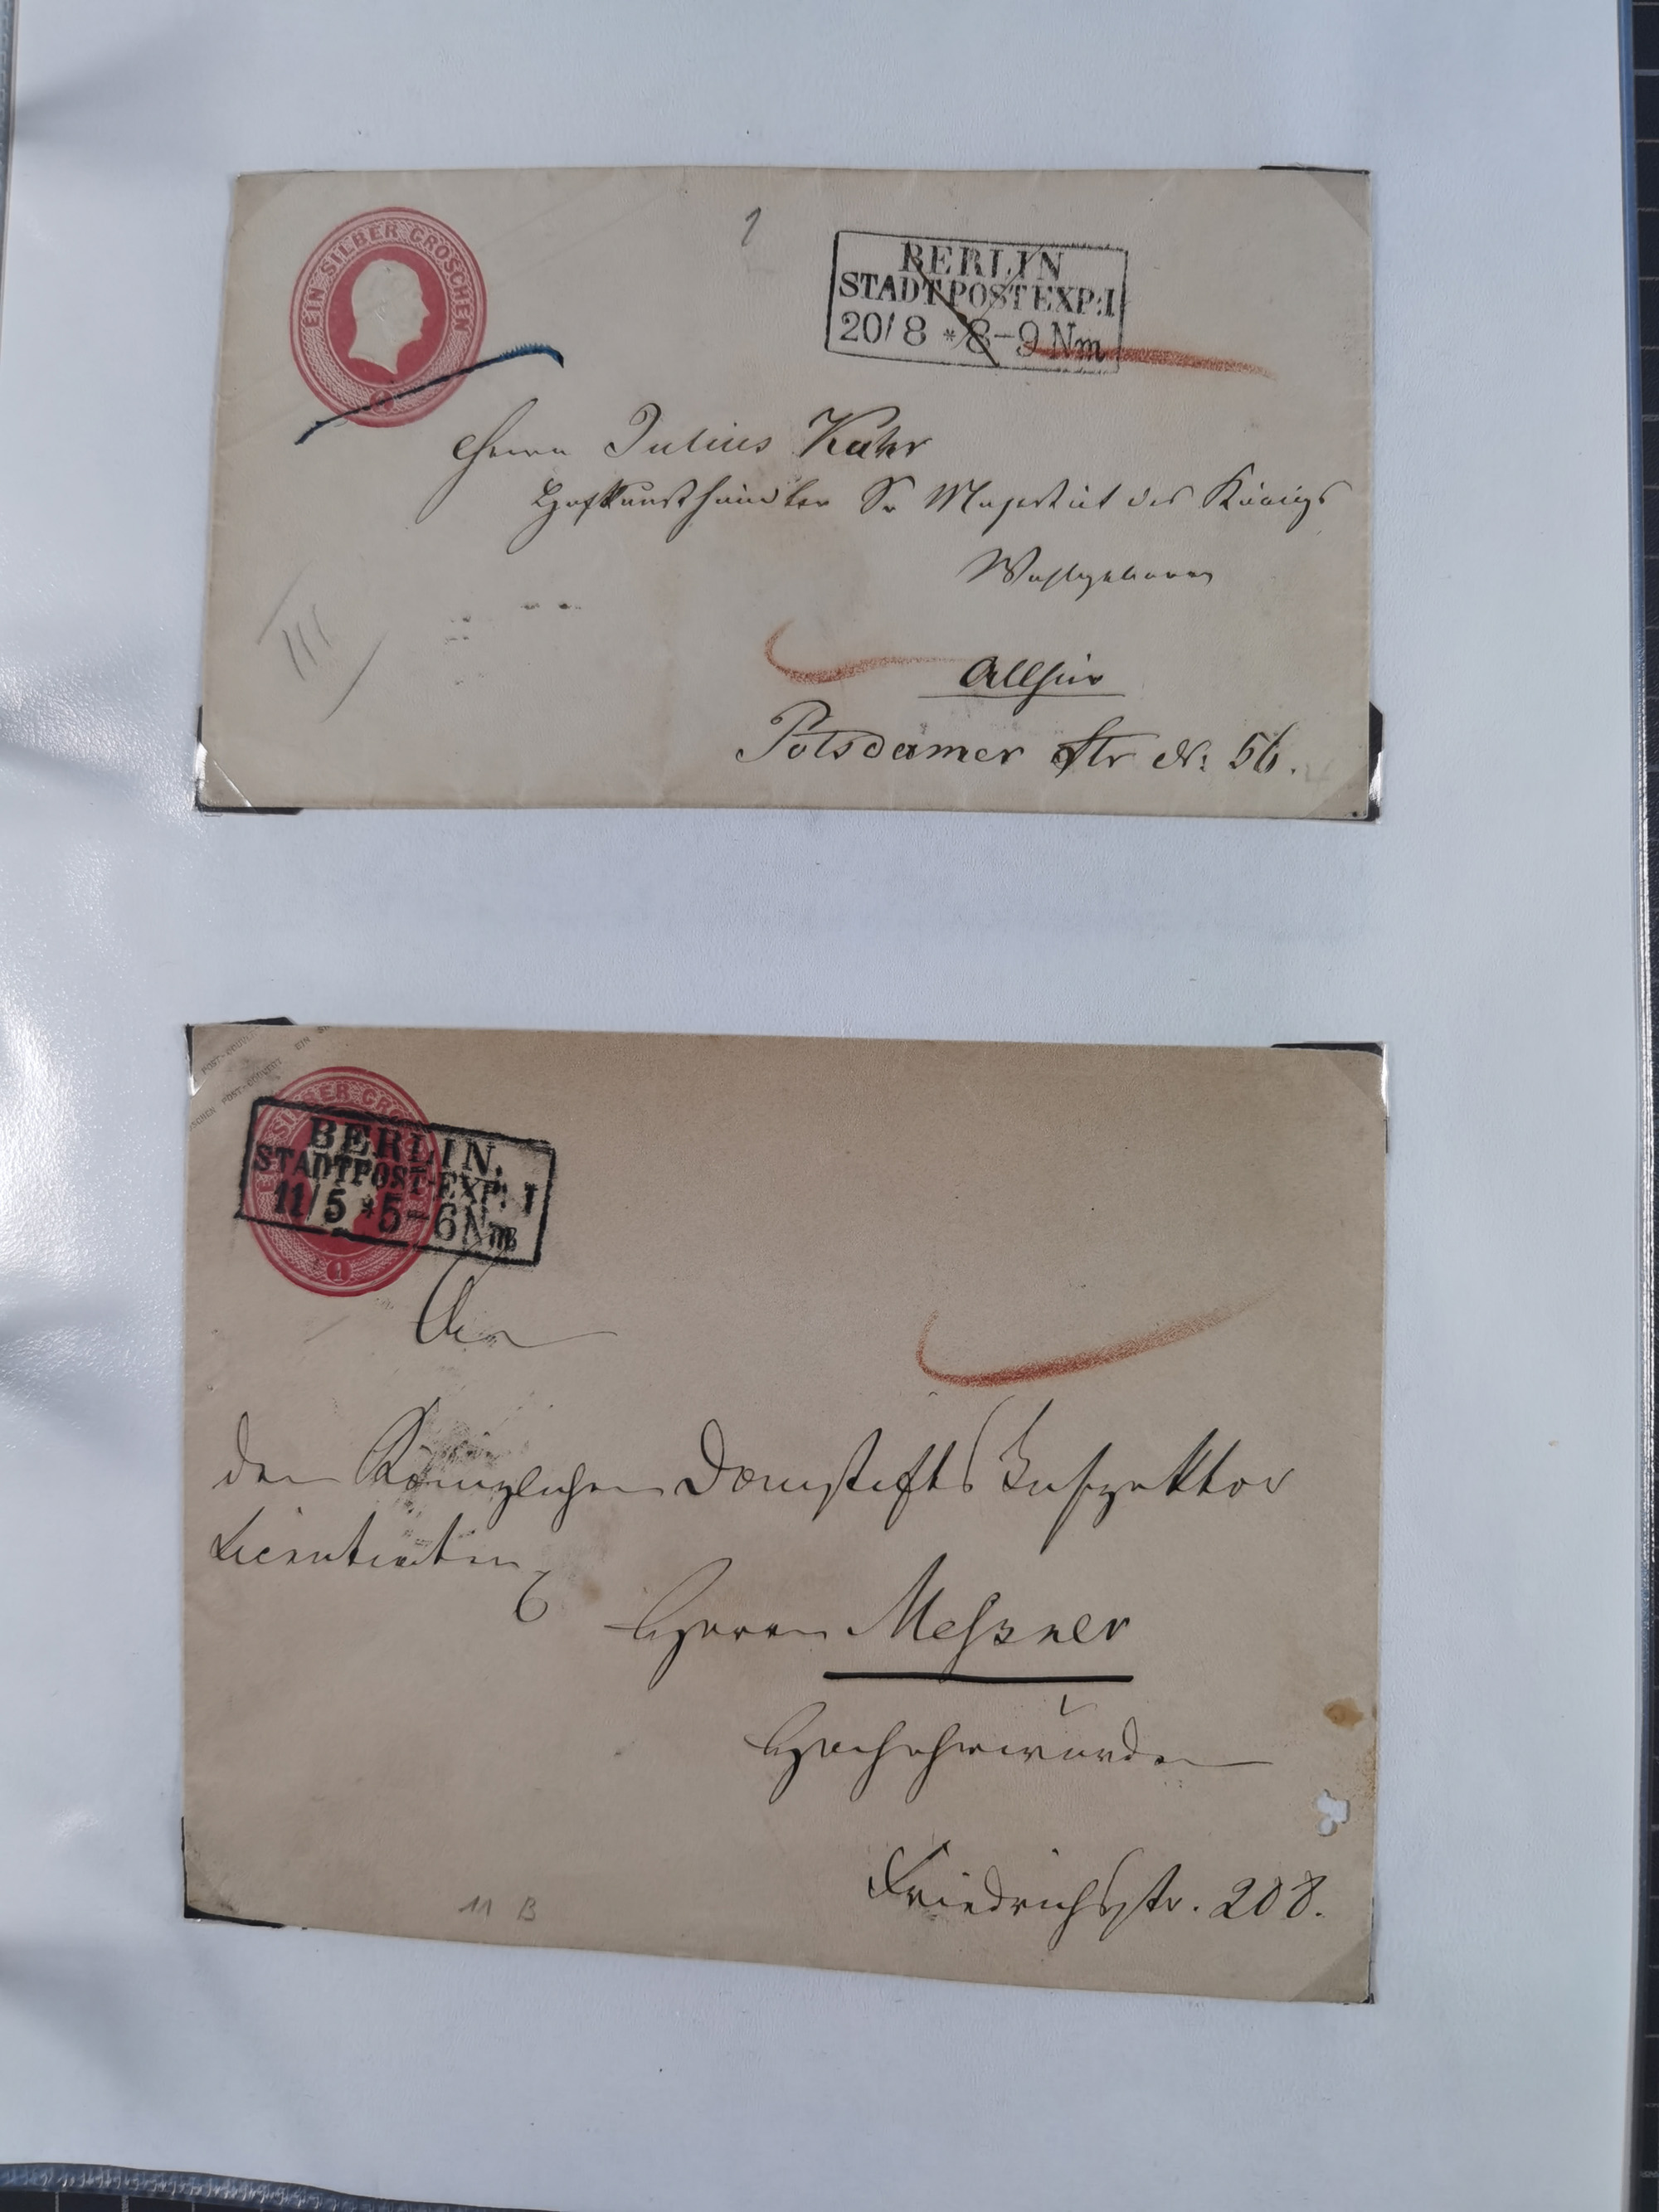 EIN SILBER GROSCHEN
1
BERLIN
STADTPOST EXP: I
20/8 * 8-9 Nm
Herrn Julius Kuhr
Hofkunsthändler Sr Majestät des Königs
Wohlgeboren
Allhier
Potsdamer Str N: 56.
III
POST-COUVERT EIN SI
OSCHEN POST-COUVERT
EIN SILBER GROSCHEN
1
BERLIN.
STADTPOST-EXP: I
11/5 * 5-6 Nm
An
den Königlichen Domstifts Inspektor
Licentiaten
Herrn Meßner
Hochehrwürden
Friedrichsstr. 208.
11 B